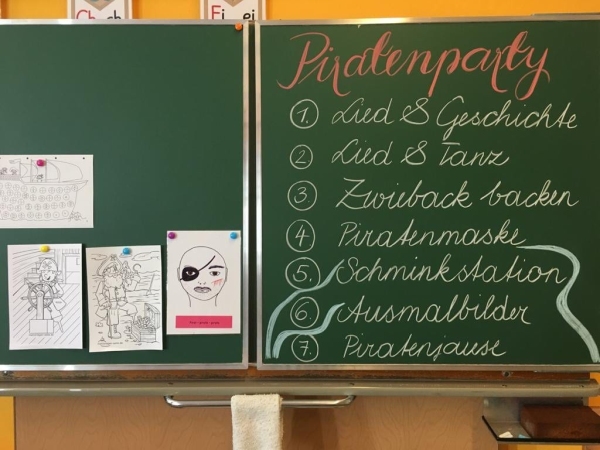 Ch ch
Ei ei
Piratenparty
1. Lied & Geschichte
2 Lied & Tanz
3. Zwieback backen
4 Piratenmaske
5. Schminkstation
6. Ausmalbilder
7. Piratenjause